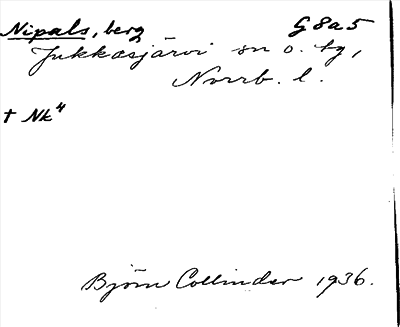 Nipals, berg G8a5
Jukkasjärvi sn o. tg,
Norrb. l.
† Nk⁴
Björn Collinder 1936.